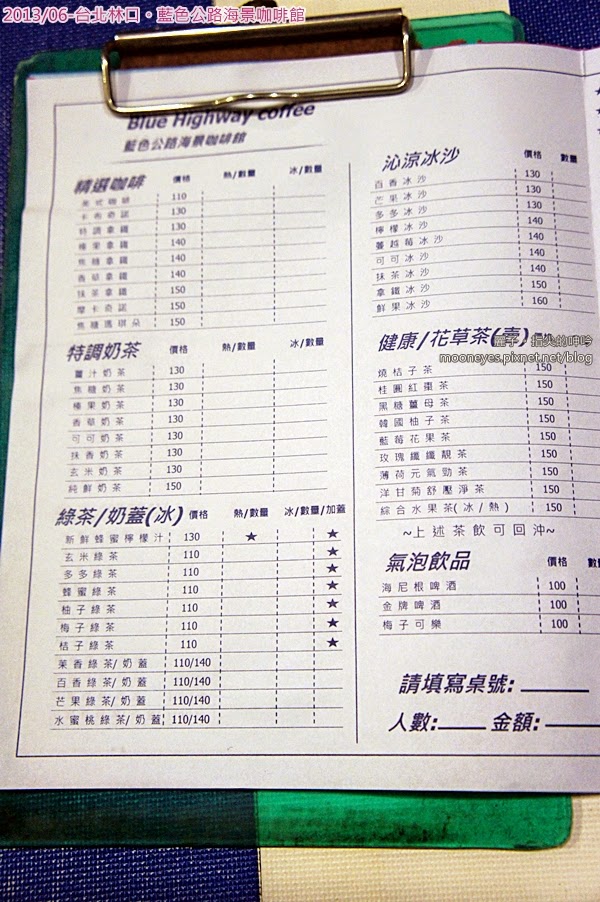 2013/06-台北林口。藍色公路海景咖啡館
Blue Highway coffee
藍色公路海景咖啡館
精選咖啡 價格 熱/數量 冰/數量
美式咖啡 110
卡布奇諾 130
特調拿鐵 130
榛果拿鐵 140
焦糖拿鐵 140
香草拿鐵 140
抹茶拿鐵 150
摩卡奇諾 150
焦糖瑪琪朵 150
特調奶茶 價格 熱/數量 冰/數量
薑汁奶茶 130
焦糖奶茶 130
榛果奶茶 130
香草奶茶 130
可可奶茶 130
抹香奶茶 130
玄米奶茶 130
純鮮奶茶 150
綠茶/奶蓋(冰) 價格 熱/數量 冰/數量/加蓋
新鮮蜂蜜檸檬汁 130 ★ ★
玄米綠茶 110 ★
多多綠茶 110 ★
蜂蜜綠茶 110 ★
柚子綠茶 110 ★
梅子綠茶 110 ★
桔子綠茶 110 ★
茉香綠茶/奶蓋 110/140
百香綠茶/奶蓋 110/140
芒果綠茶/奶蓋 110/140
水蜜桃綠茶/奶蓋 110/140
沁涼冰沙 價格 數量
百香冰沙 130
芒果冰沙 130
多多冰沙 130
檸檬冰沙 140
蔓越莓冰沙 140
可可冰沙 140
抹茶冰沙 140
拿鐵冰沙 150
鮮果冰沙 160
健康/花草茶(壺) 價格
mooneyes.pixnet.net/blog
燒桔子茶 150
桂圓紅棗茶 150
黑糖薑母茶 150
韓國柚子茶 150
藍莓花果茶 150
玫瑰纖纖靚茶 150
薄荷元氣勁茶 150
洋甘菊舒壓淨茶 150
綜合水果茶(冰/熱) 150
~上述茶飲可回沖~
氣泡飲品 價格 數
海尼根啤酒 100
金牌啤酒 100
梅子可樂 100
請填寫桌號:
人數: 金額: